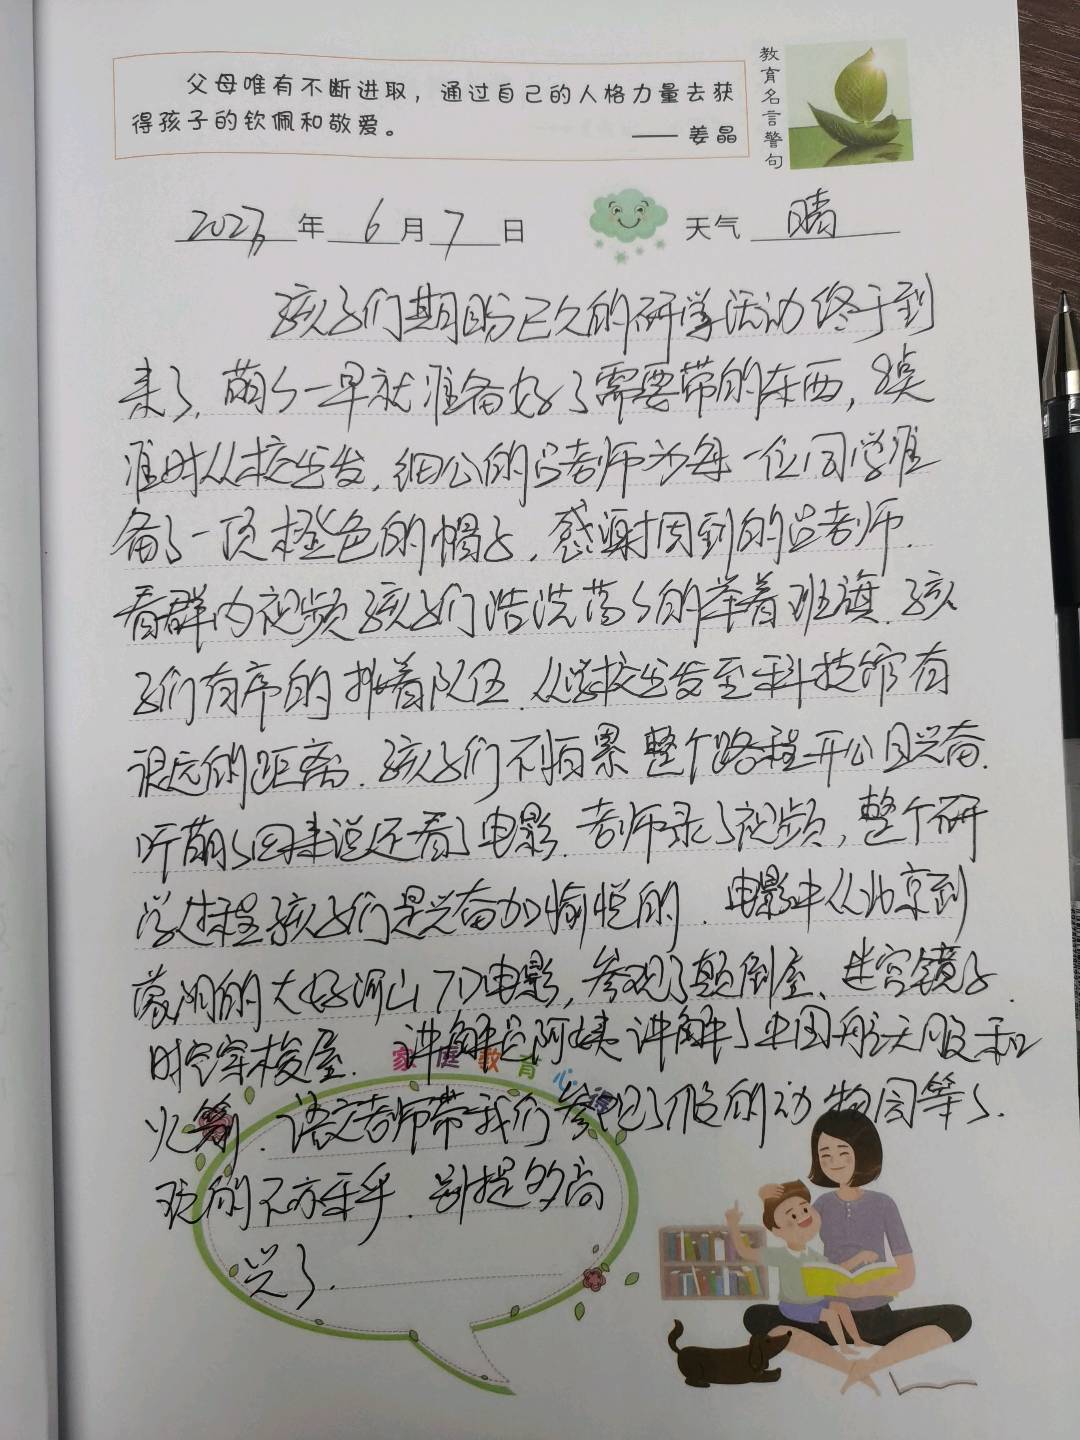 父母唯有不断进取，通过自己的人格力量去获
得孩子的钦佩和敬爱。
—— 姜晶
教育名言警句
2023年 6月 7日 天气 晴
孩子们期盼已久的研学活动终于到
来了，萌萌一早就准备好了需要带的东西，8点
准时从校出发，细心的吕老师为每一位同学准
备了一顶橙色的帽子，感谢周到的吕老师.
看群内视频孩子们浩浩荡荡的举着班旗.孩
子们有序的排着队伍.从学校出发至科技馆有
很远的距离.孩子们不怕累整个路程开心且兴奋.
听萌萌回来说还看了电影.老师录了视频，整个研
学过程孩子们是兴奋加愉悦的.电影中从北京到
的大好河山7D电影，参观了颠倒屋、迷宫镜子.
时空穿梭屋.讲解员阿姨讲解了中国航天服和
家庭教育心得
火箭.语文老师带我们参观了的动物园等等.
玩的不亦乐乎.别提多高
兴了.